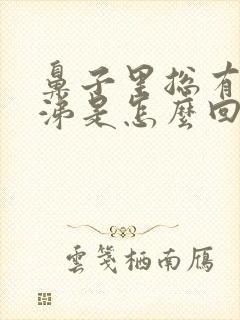 鼻子里总有
涕是怎麽回
雲箋栖南雁